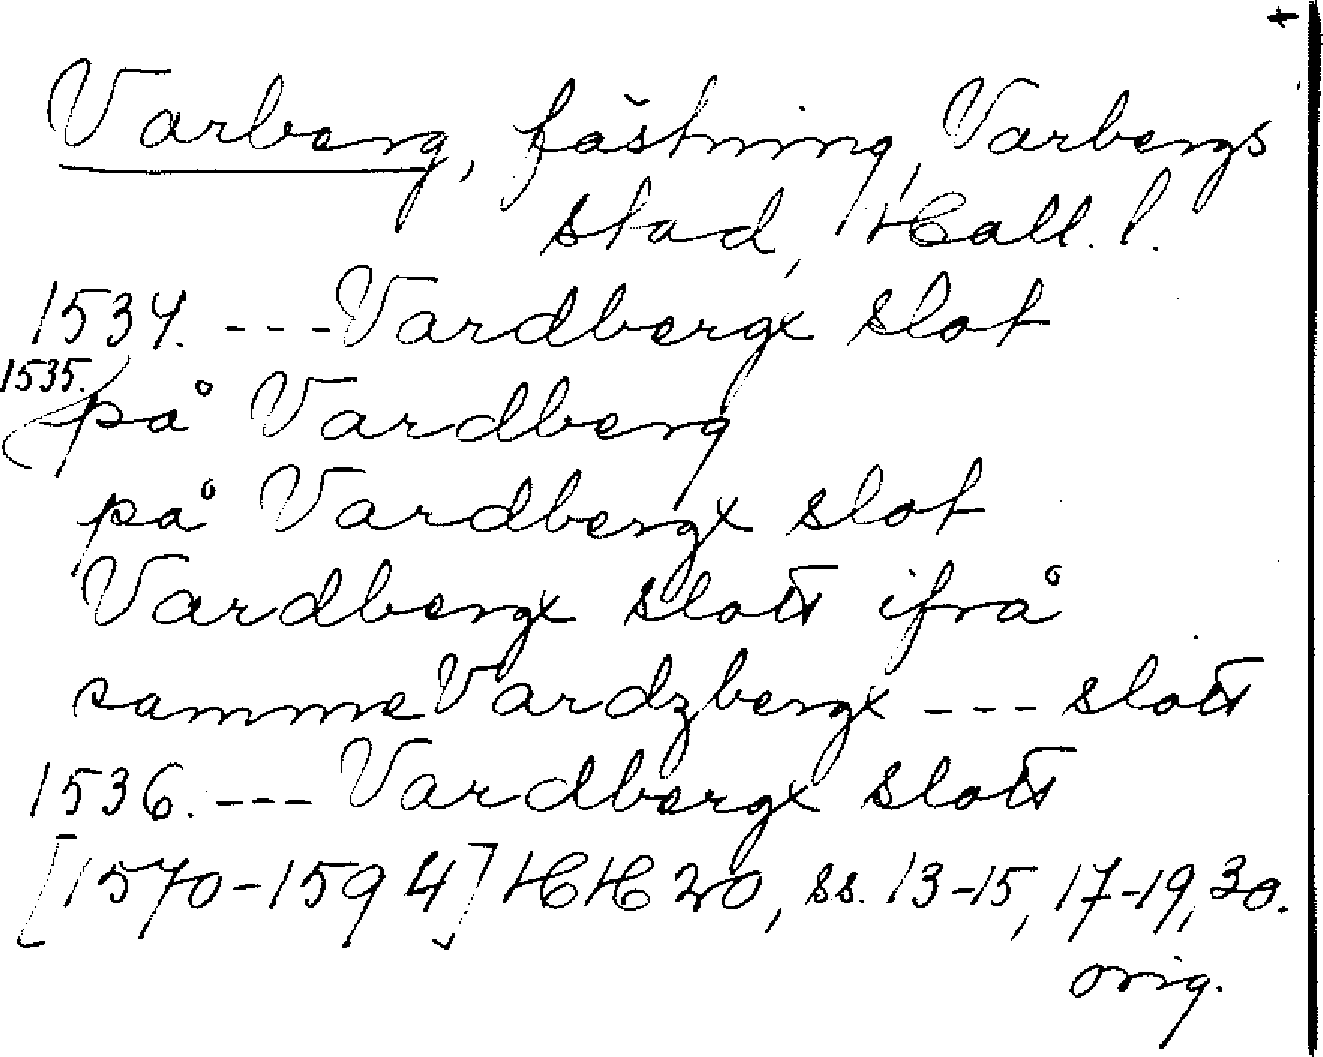 +
Varberg, fästning, Varbergs
stad, Hall. l.
1534. --- Vardbergx slot
1535.
på Vardberg
på Vardbergx slot
Vardbergx slott ifrå
samme Vardzbergx --- slott
1536. --- Vardbergx slott
[1570-1594] HH 20, ss. 13-15, 17-19, 30.
orig.